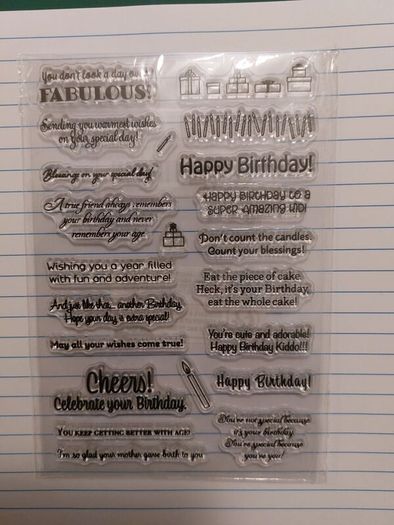 You don't look a day over
FABULOUS!
Sending you warmest wishes
on your special day!
Blessings on your special day!
A true friend always remembers
your birthday and never
remembers your age.
Wishing you a year filled
with fun and adventure!
And just like that... another Birthday.
Hope your day is extra special!
May all your wishes come true!
Cheers!
Celebrate your Birthday.
You keep getting better with age!
I'm so glad your mother gave birth to you
Happy Birthday!
Happy Birthday to a
super amazing kid!
Don't count the candles.
Count your blessings!
Eat the piece of cake.
Heck, it's your Birthday,
eat the whole cake!
You're cute and adorable!
Happy Birthday Kiddo!!!
Happy Birthday!
You're not special because
it's your birthday.
You're special because
you're you!